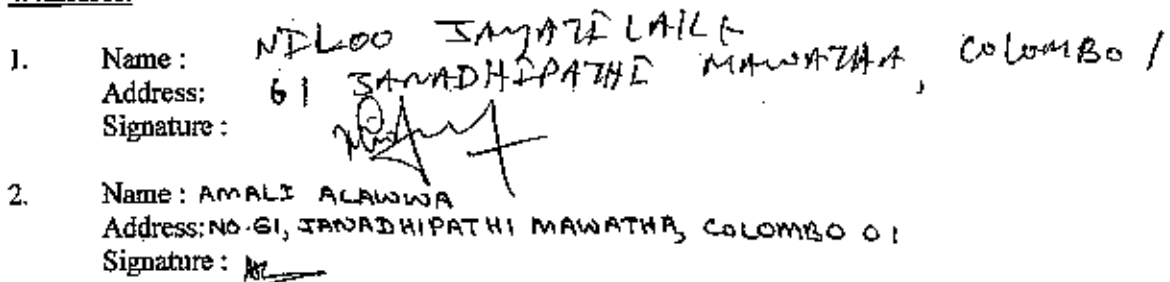 1. Name : NILOO JAYATILAKE
Address: 61 JANADHIPATHI MAWATHA, COLOMBO 1
Signature :
2. Name : AMALI ALAWWA
Address: NO. 61, JANADHIPATHI MAWATHA, COLOMBO 01
Signature :